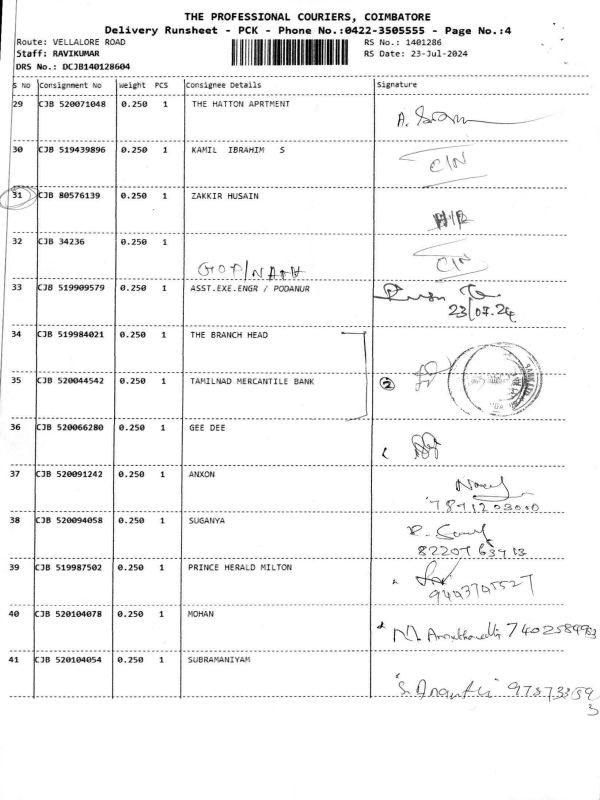 THE PROFESSIONAL COURIERS, COIMBATORE
Delivery Runsheet - PCK - Phone No.:0422-3505555 - Page No.:4
Route: VELLALORE ROAD RS No.: 1401286
Staff: RAVIKUMAR RS Date: 23-Jul-2024
DRS No.: DCJB140128604
S No Consignment No Weight PCS Consignee Details Signature
29 CJB 520071048 0.250 1 THE HATTON APRTMENT
30 CJB 519439896 0.250 1 KAMIL IBRAHIM S CIN
31 CJB 80576139 0.250 1 ZAKKIR HUSAIN
32 CJB 34236 0.250 1 CIN
GOPINATH
33 CJB 519909579 0.250 1 ASST.EXE.ENGR / PODANUR
23/07.24
34 CJB 519984021 0.250 1 THE BRANCH HEAD
35 CJB 520044542 0.250 1 TAMILNAD MERCANTILE BANK 2
36 CJB 520066280 0.250 1 GEE DEE
37 CJB 520091242 0.250 1 ANXON
7871203000
38 CJB 520094058 0.250 1 SUGANYA
39 CJB 519987502 0.250 1 PRINCE HERALD MILTON
40 CJB 520104078 0.250 1 MOHAN
41 CJB 520104054 0.250 1 SUBRAMANIYAM